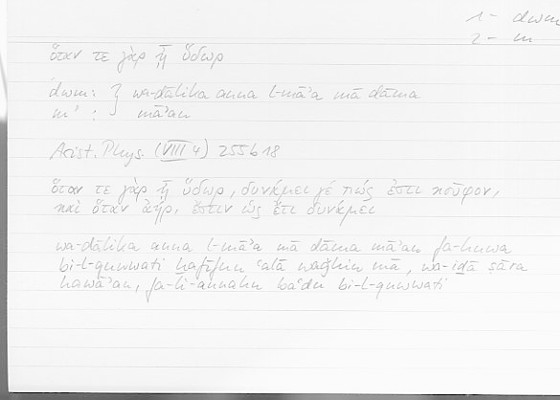 1- dwm
2- m
ὅταν τε γὰρ ᾖ ὕδωρ
dwm: } wa-ḏālika anna l-mā'a mā dāma
m' : } mā'an
Arist. Phys. (VIII 4) 255 b 18
ὅταν τε γὰρ ᾖ ὕδωρ, δυνάμει γέ πώς ἐστι κοῦφον,
καὶ ὅταν ἀήρ, ἔστιν ὡς ἔτι δυνάμει
wa-ḏālika anna l-mā'a mā dāma mā'an fa-huwa
bi-l-quwwati ḫafīfun ʿalā waǧhin mā, wa-iḏā ṣāra
hawā'an, fa-li-annahu baʿdu bi-l-quwwati